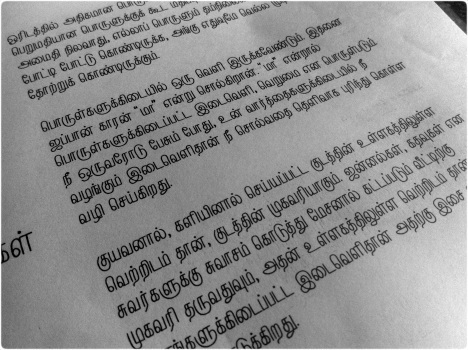 ஓரிடத்தில் அதிகமான பொரு
பெறுமதியான பொருளுக்கு கூட மதி
அமைதி நிலவாது, எல்லாப் பொருளும் தம்நிலை
போட்டி போட்டு கொண்டிருக்க, அங்கு எதுவுமே வெல்ல மு
தோற்றுக் கொண்டிருக்கும்.
பொருள்களுக்கிடையில் ஒரு வெளி இருக்கவேண்டும் இதனை
ஜப்பான் காரன் "மா" என்று சொல்கிறான். "மா" என்றால்
பொருள்களுக்கிடைப்பட்ட இடைவெளி, வெறுமை என பொருள்படும்
நீ ஒருவரோடு பேசும் போது, உன் வார்த்தைகளுக்கிடையில் நீ
வழங்கும் இடைவெளிதான் நீ சொல்வதை தெளிவாக புரிந்து கொள்ள
வழி செய்கிறது.
கள்
குயவனால், களியினால் செய்யப்பட்ட குடத்தின் உள்ளகத்திலுள்ள
வெற்றிடம் தான், குடத்தின் முகவரியாகும் ஜன்னல்கள், கதவுகள் என
சுவர்களுக்கு சுவாசம் கொடுத்து மேசனால் கட்டப்படும் வீட்டிற்கு
முகவரி தருவதுவும், அதன் உள்ளகத்திலுள்ள வெற்றிடம் தான்
களுக்கிடைப்பட்ட இடைவெளிதான் அதற்கு இசை
டுக்கிறது.